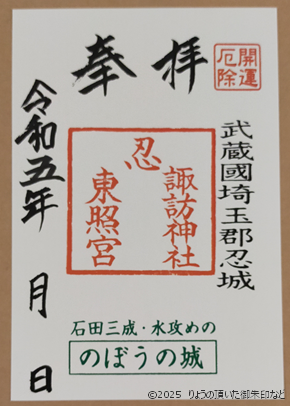 奉拝
開運
厄除
武蔵國埼玉郡忍城
忍
諏訪神社
東照宮
石田三成・水攻めの
のぼうの城
令和五年　月　日
©2025 りょうの頂いた御朱印など